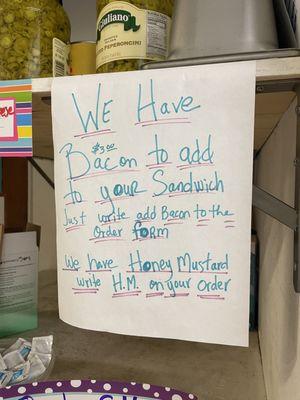 Giuliano
PEPPERONCINI
WE Have
$3.00
Bacon to add
to your Sandwich
Just write add Bacon to the
Order foRM
We have Honey Mustard
write H.M. on your order